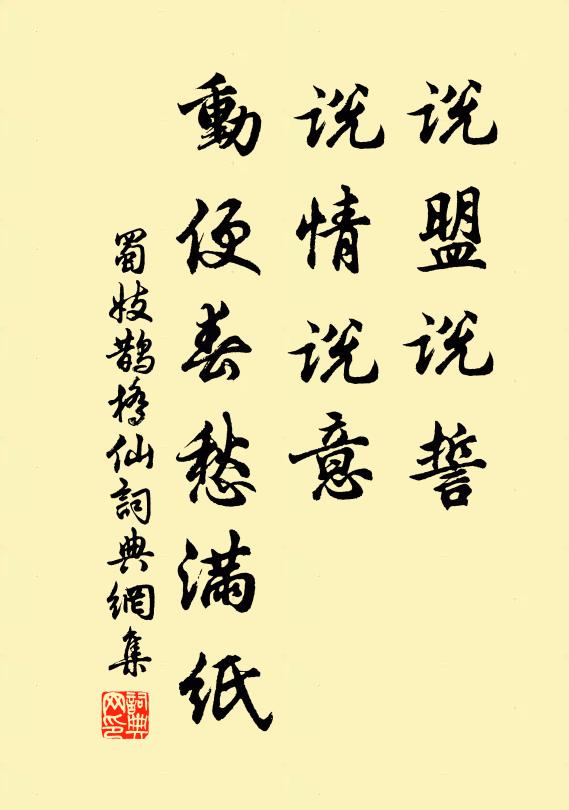 说盟说誓
说情说意
動便春愁满纸
蜀妓鵲橋仙詞典網集
詞典网印